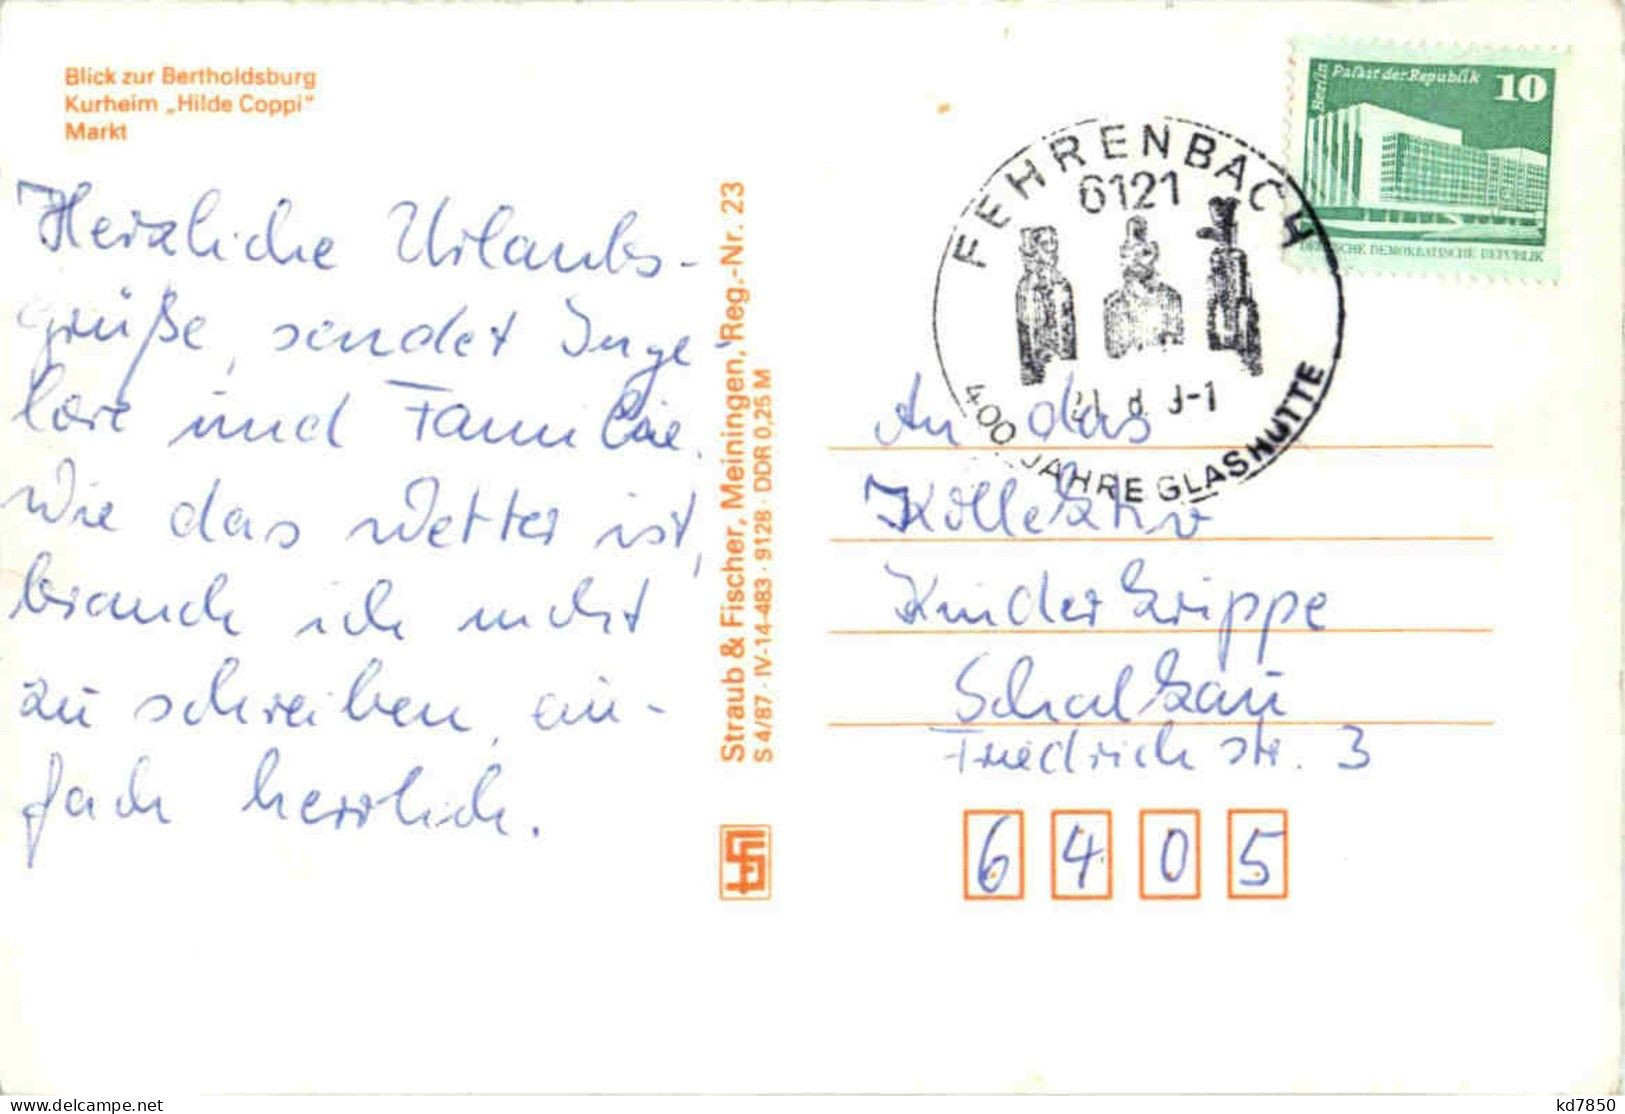 Blick zur Bertholdsburg
Kurheim „Hilde Coppi"
Markt
Herzliche Urlaubs-
grüße, sendet Inge-
lore und Familie.
Wie das Wetter ist,
brauch ich nicht
zu schreiben, ein-
fach herzlich.
Straub & Fischer, Meiningen, Reg.-Nr. 23
S 4/87 · IV-14-483 · 9128 · DDR 0,25 M
FEHRENBACH
6121
400 JAHRE GLASHÜTTE
Berlin Palast der Republik 10
DEUTSCHE DEMOKRATISCHE REPUBLIK
An das
Kollektiv
Kinderkrippe
Schalkau
Friedrichstr. 3
6405
delcampe.net
kd7850